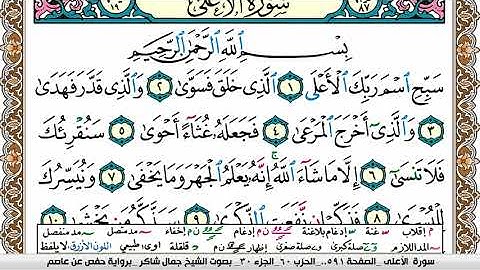 سورة الأعلى
بِسْمِ ٱللَّهِ ٱلرَّحْمَٰنِ ٱلرَّحِيمِ
سَبِّحِ ٱسْمَ رَبِّكَ ٱلْأَعْلَى ١ ٱلَّذِى خَلَقَ فَسَوَّىٰ ٢ وَٱلَّذِى قَدَّرَ فَهَدَىٰ
٣ وَٱلَّذِىٓ أَخْرَجَ ٱلْمَرْعَىٰ ٤ فَجَعَلَهُۥ غُثَآءً أَحْوَىٰ ٥ سَنُقْرِئُكَ
فَلَا تَنسَىٰٓ ٦ إِلَّا مَا شَآءَ ٱللَّهُ إِنَّهُۥ يَعْلَمُ ٱلْجَهْرَ وَمَا يَخْفَىٰ ٧ وَنُيَسِّرُكَ
لِلْيُسْرَىٰ ٨ فَذَكِّرْ إِن نَّفَعَتِ ٱلذِّكْرَىٰ ٩ سَيَذَّكَّرُ مَن يَخْشَىٰ ١٠
م إقلاب غنة إدغام بلاغنة إدغام إخفاء مد متصل مد منفصل
المد اللازم صلة كبرى صلة صغرى إظهار قلقلة مد طبيعي اللون الأزرق لا يلفظ
سورة الأعلى - الصفحة ٥٩١ - الحزب ٦٠ - الجزء ٣٠ - بصوت الشيخ جمال شاكر - برواية حفص عن عاصم